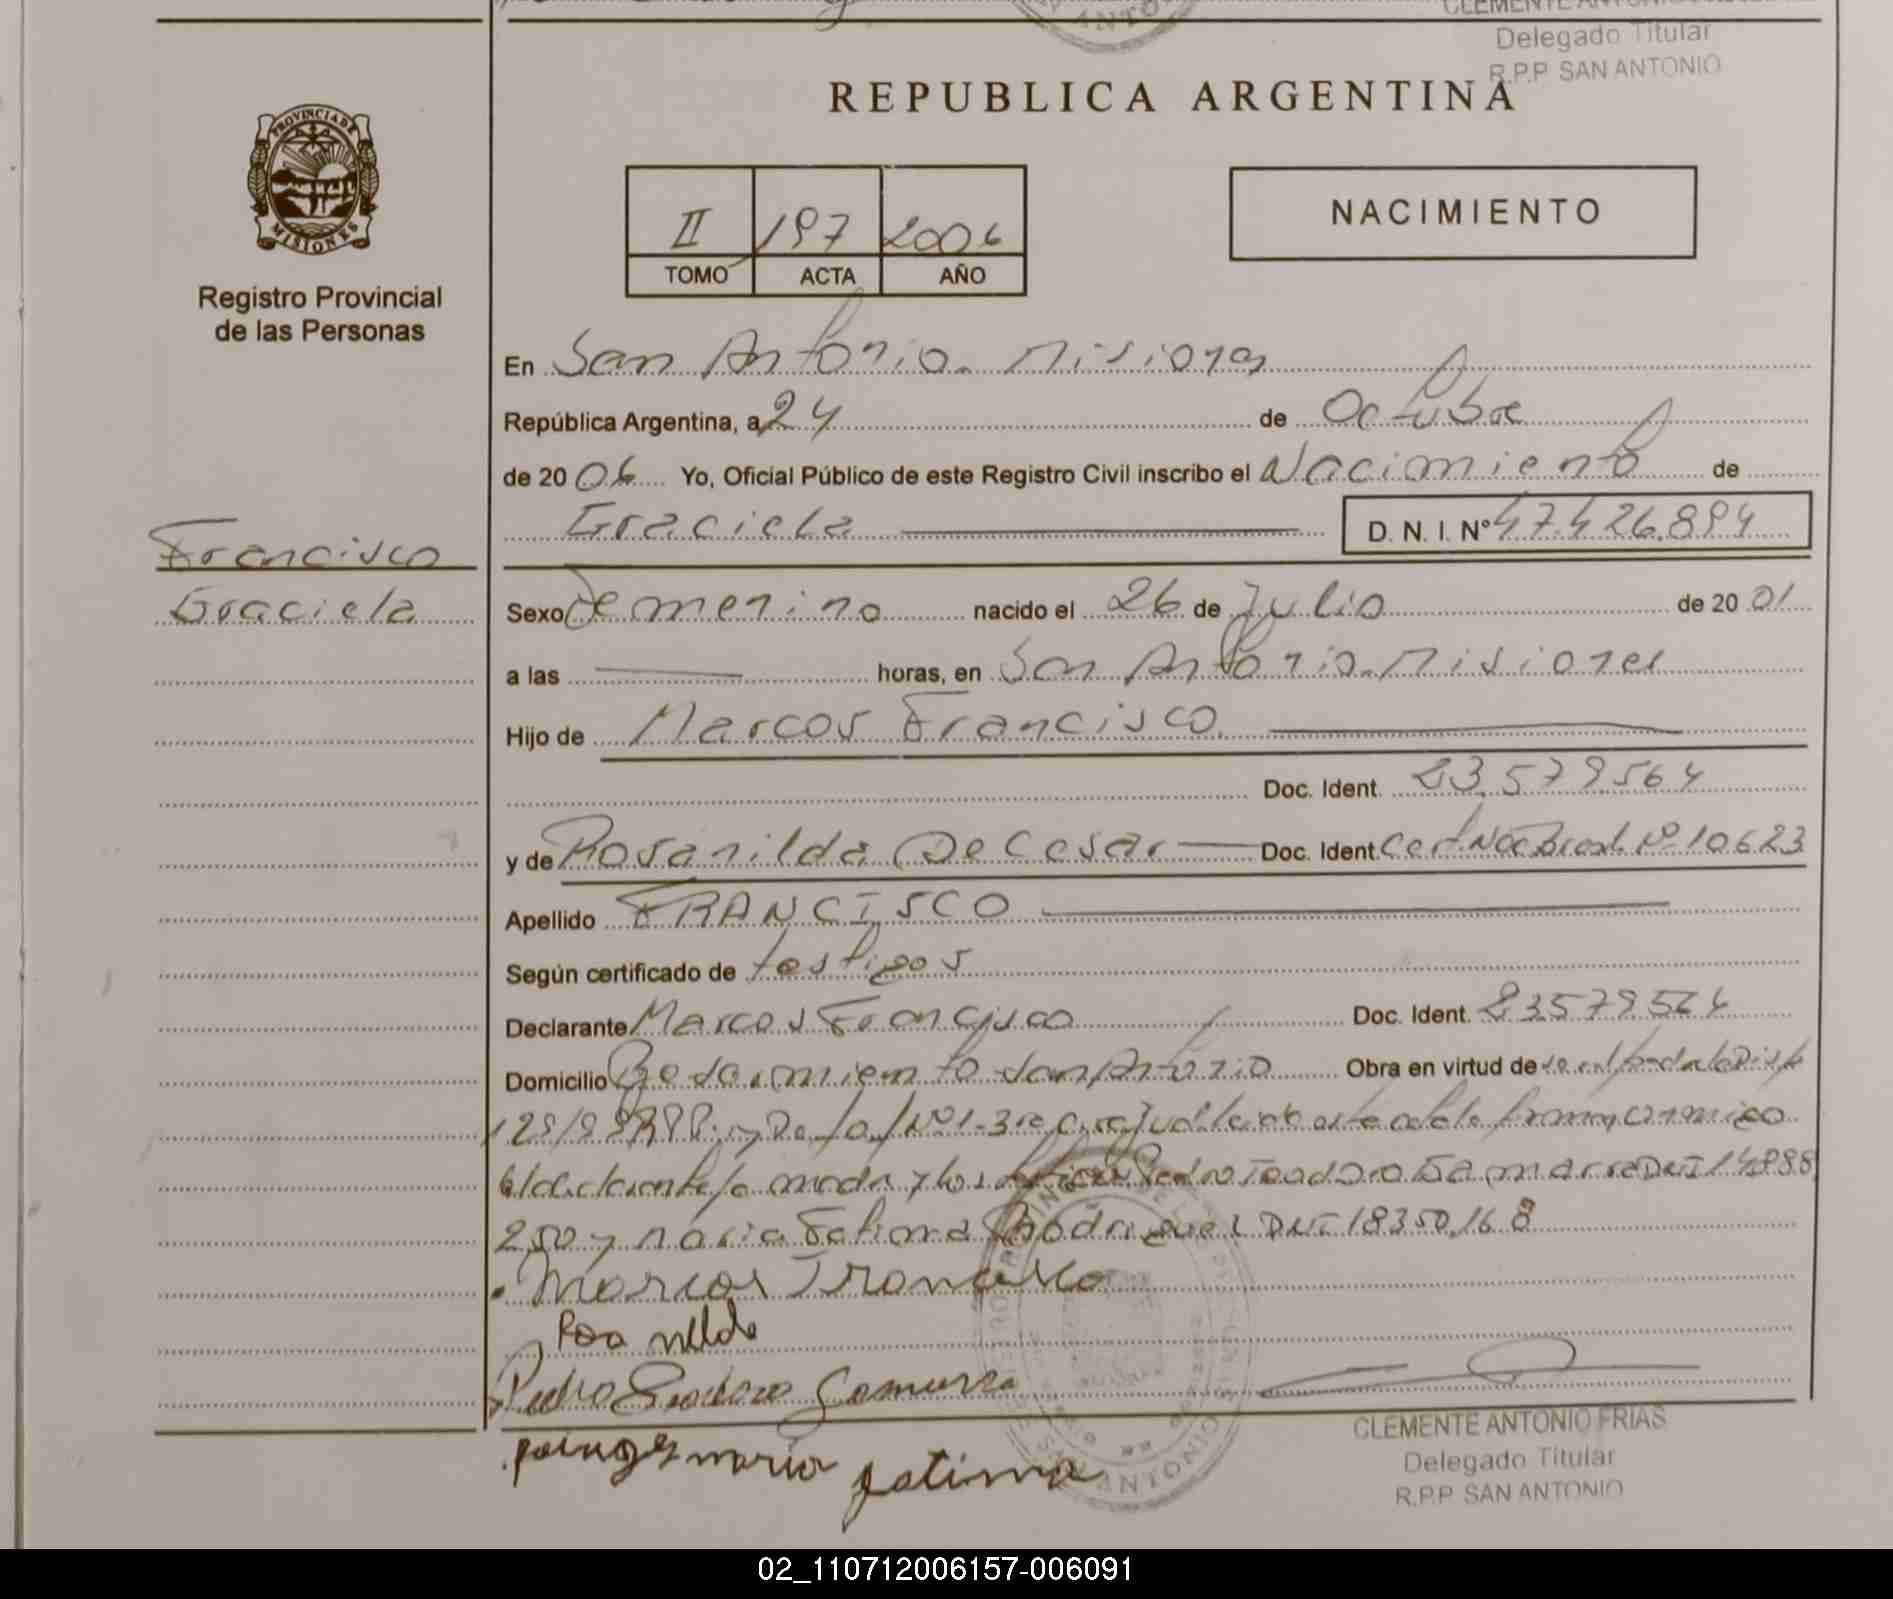 CLEMENTE ANTONIO
Delegado Titular
R.P.P. SAN ANTONIO
REPUBLICA ARGENTINA
PROVINCIA DE
MISIONES
Registro Provincial
de las Personas
II 197 2006
TOMO ACTA AÑO
NACIMIENTO
En San Antonio. Misiones
República Argentina, a 24 de Octubre
de 20 06 Yo, Oficial Público de este Registro Civil inscribo el Nacimiento de
Graciela D. N. I. Nº 47.426.894
Francisco
Graciela
Sexo Femenino nacido el 26 de Julio de 20 01
a las horas, en San Antonio. Misiones
Hijo de Marcos Francisco
Doc. Ident. 23.579.564
y de Rosanilda De Cesar Doc. Ident. Cert. Nac Brasil Nº 10623
Apellido FRANCISCO
Según certificado de testigos
Declarante Marcos Francisco Doc. Ident. 23579564
Domicilio San Antonio Obra en virtud de
el declarante la madre y los testigos Pedro Teodoro Gamarra DNI 14888
250 y Maria Fatima Rodriguez DNI 18350.168
Marcos Francisco
Rosa nilda
Pedro Teodoro Gamarra
maria fatima
CLEMENTE ANTONIO FRIAS
Delegado Titular
R.P.P. SAN ANTONIO
02_110712006157-006091